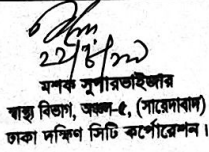 ২২/৪/২০
মশক সুপারভাইজার
স্বাস্থ্য বিভাগ, অঞ্চল-৫, (সায়েদাবাদ)
ঢাকা দক্ষিণ সিটি কর্পোরেশন।